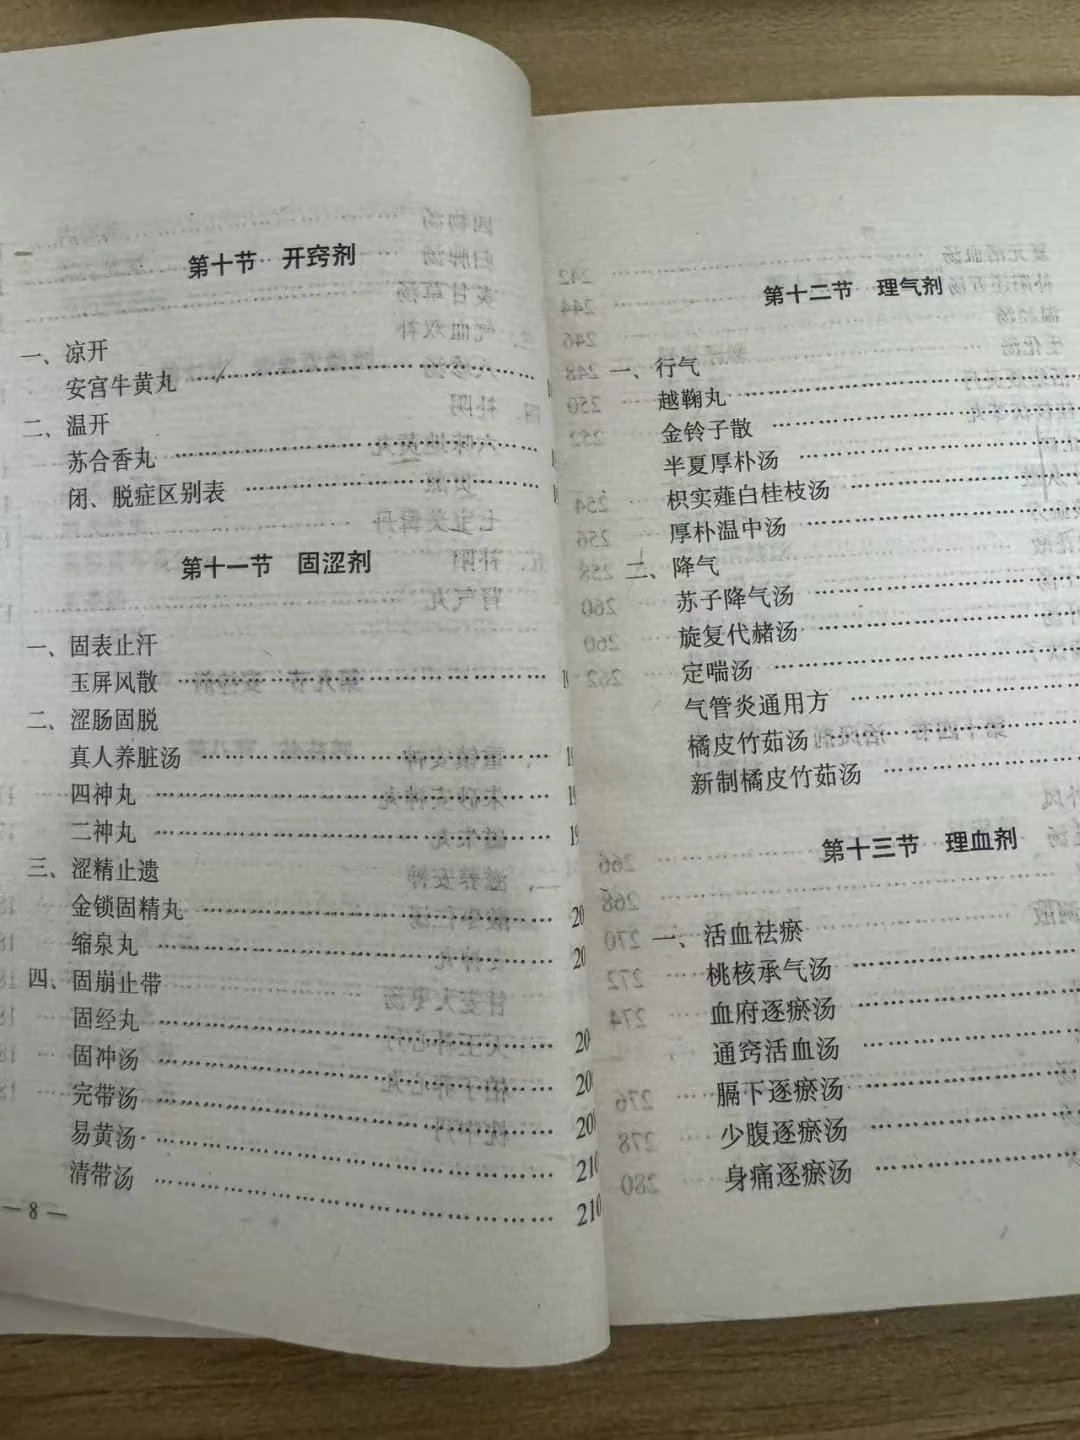 第十节 开窍剂
一、凉开
安宫牛黄丸
二、温开
苏合香丸
闭、脱症区别表
第十一节 固涩剂
一、固表止汗
玉屏风散
二、涩肠固脱
真人养脏汤
四神丸
二神丸
三、涩精止遗
金锁固精丸
缩泉丸
四、固崩止带
固经丸
固冲汤
完带汤
易黄汤
清带汤 210
— 8 —
第十二节 理气剂
一、行气
越鞠丸
金铃子散
半夏厚朴汤
枳实薤白桂枝汤
厚朴温中汤
二、降气
苏子降气汤
旋复代赭汤
定喘汤
气管炎通用方
橘皮竹茹汤
新制橘皮竹茹汤
第十三节 理血剂
一、活血祛瘀
桃核承气汤
血府逐瘀汤
通窍活血汤
膈下逐瘀汤
少腹逐瘀汤
身痛逐瘀汤